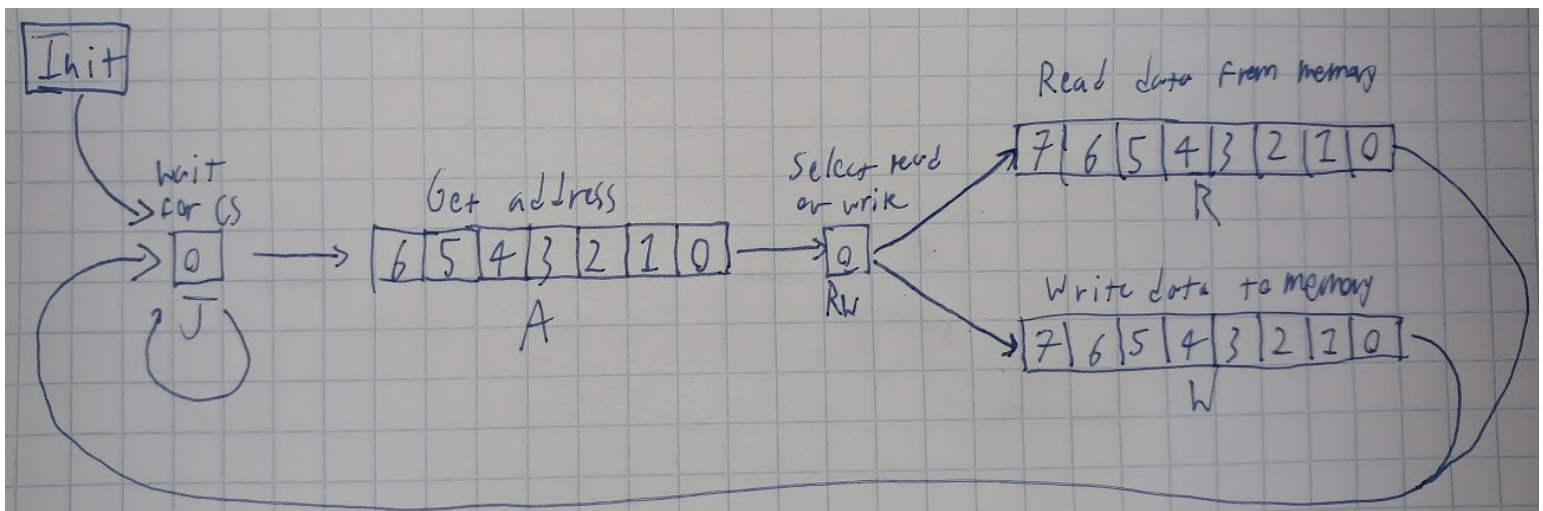 Init
Wait
for CS
0
J
Get address
6 5 4 3 2 1 0
A
Select read
or write
0
RW
Read data from memory
7 6 5 4 3 2 1 0
R
Write data to memory
7 6 5 4 3 2 1 0
W